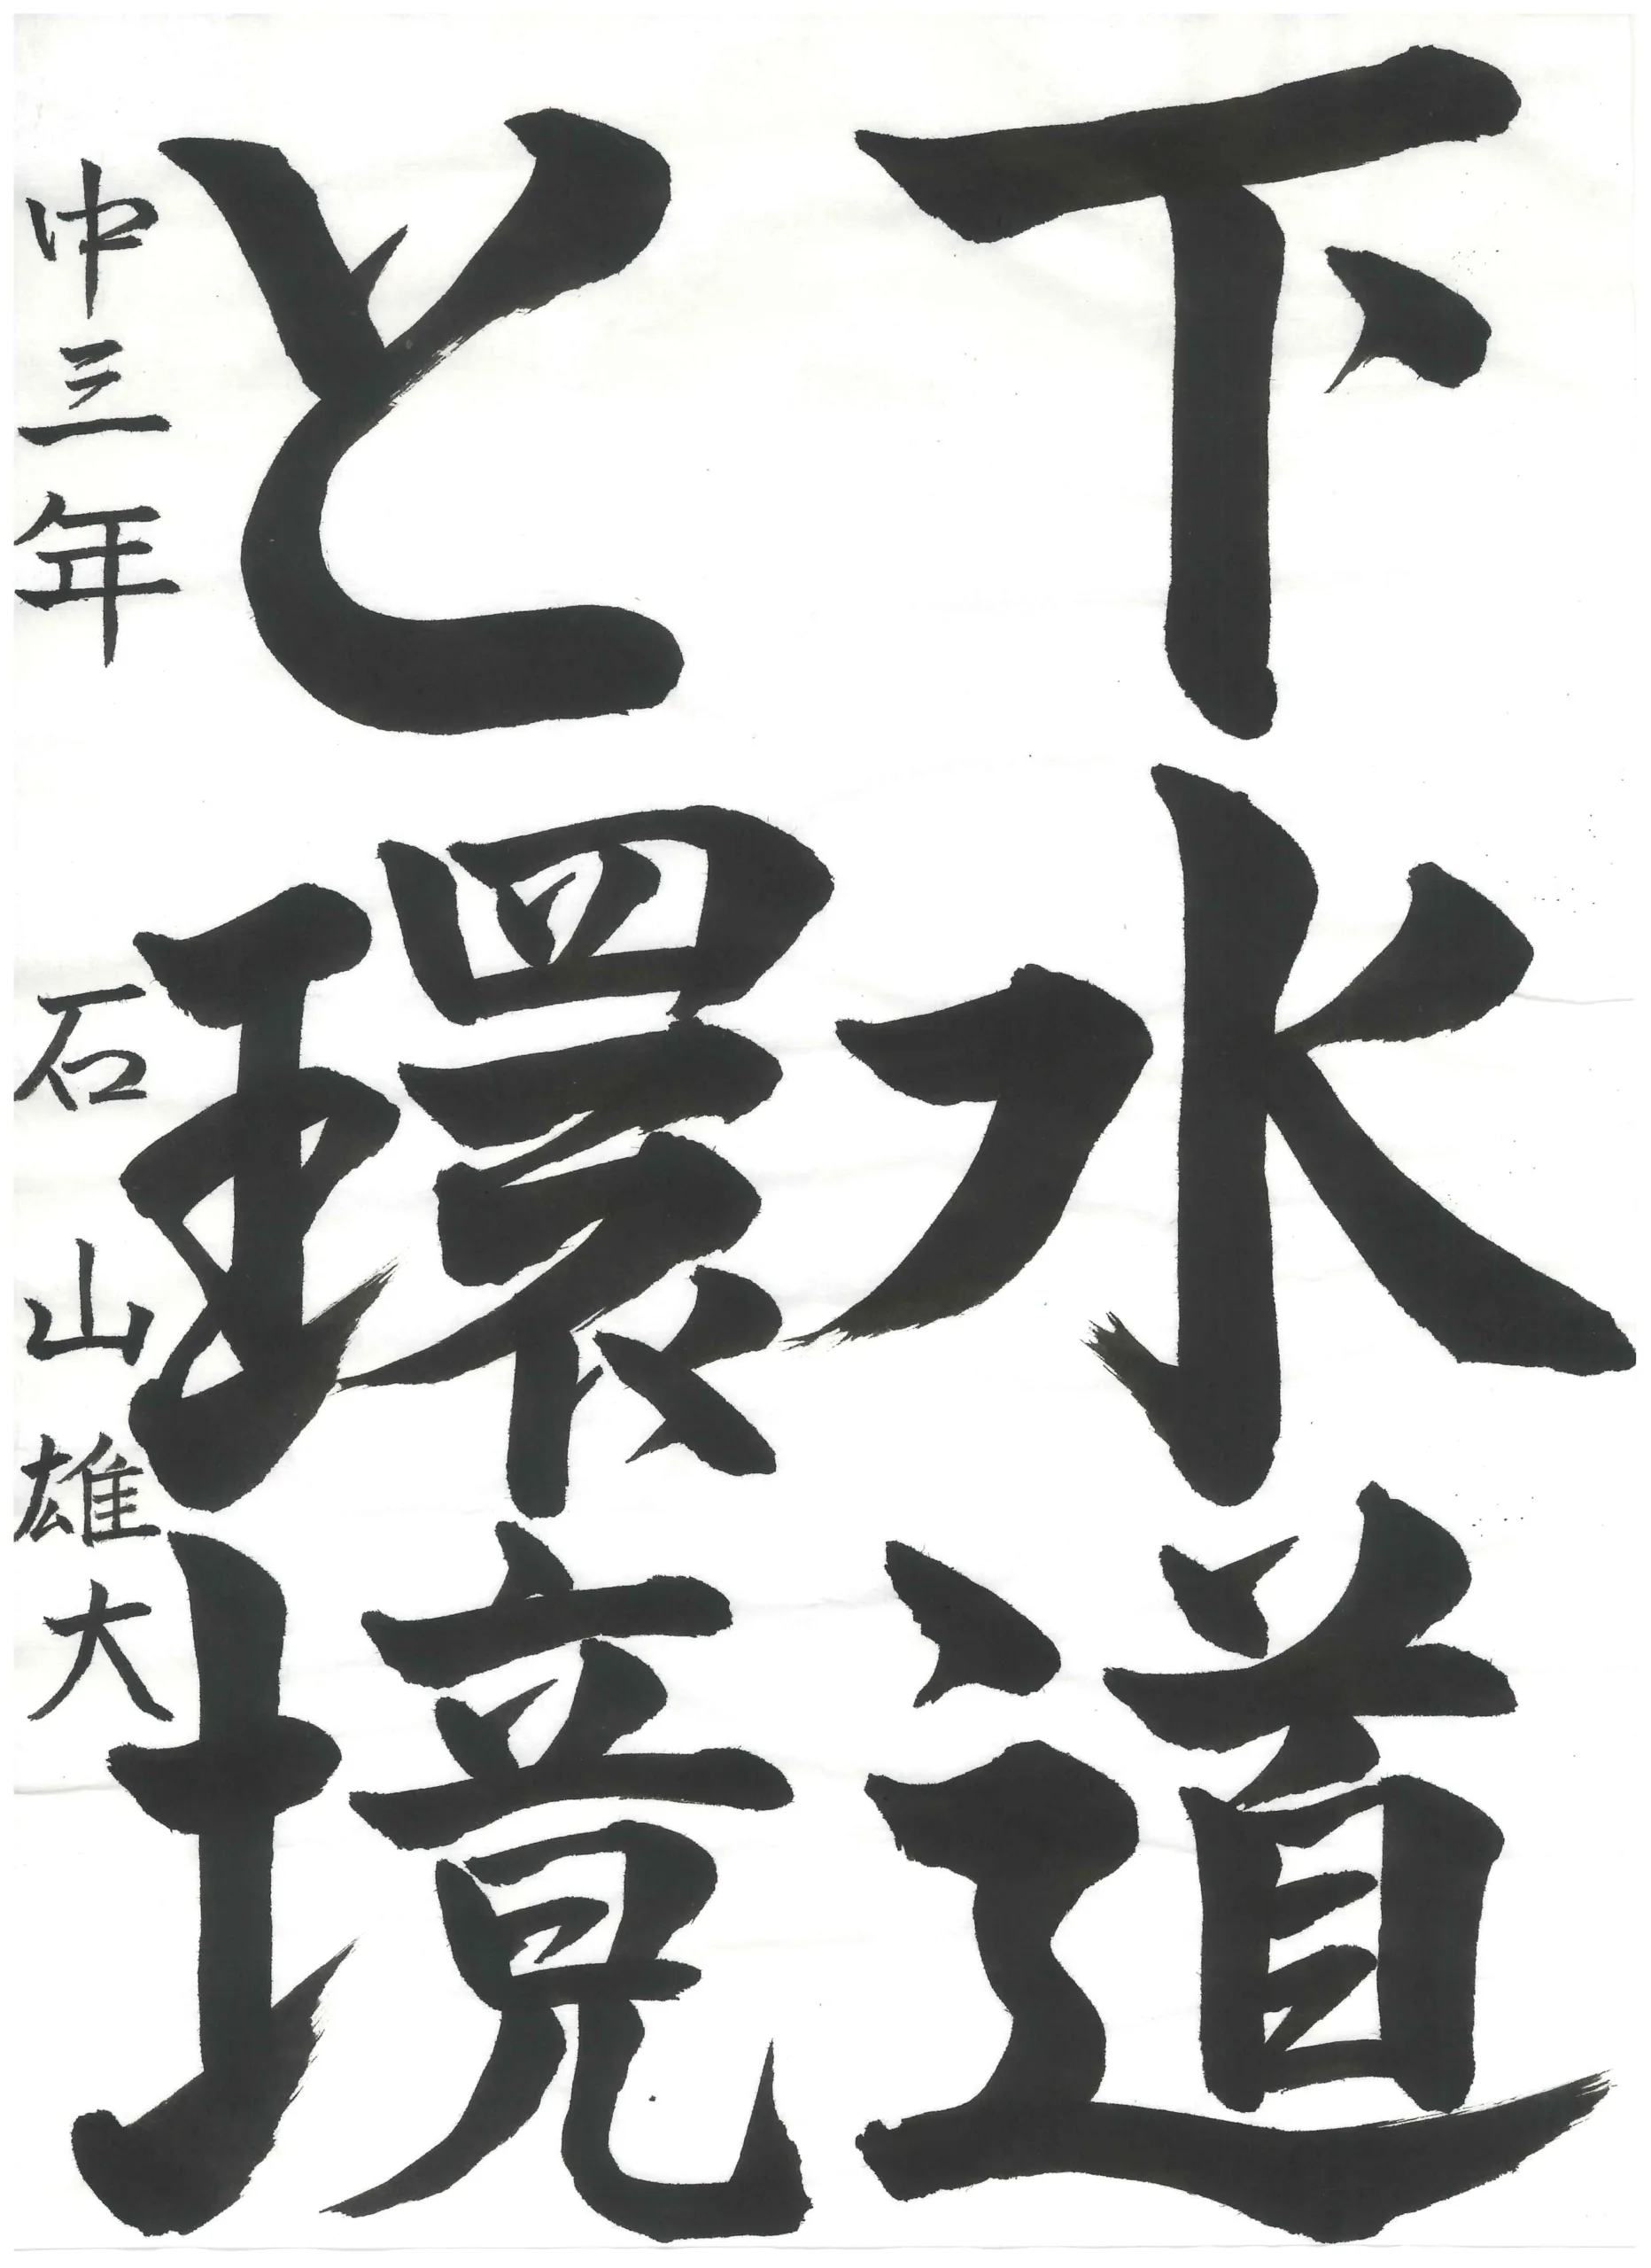 下水道
と環境
中三年 石山雄大